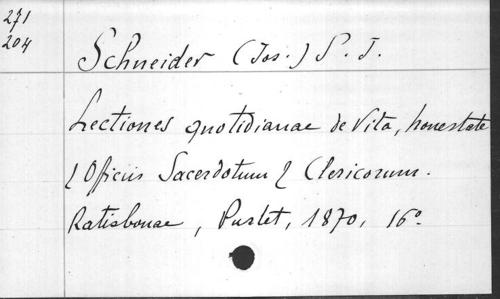 271
204
Schneider (Jos.) S. J.
Lectiones quotidianae de Vita, honestate
& Officiis Sacerdotum & Clericorum.
Ratisbonae, Pustet, 1870, 16°.